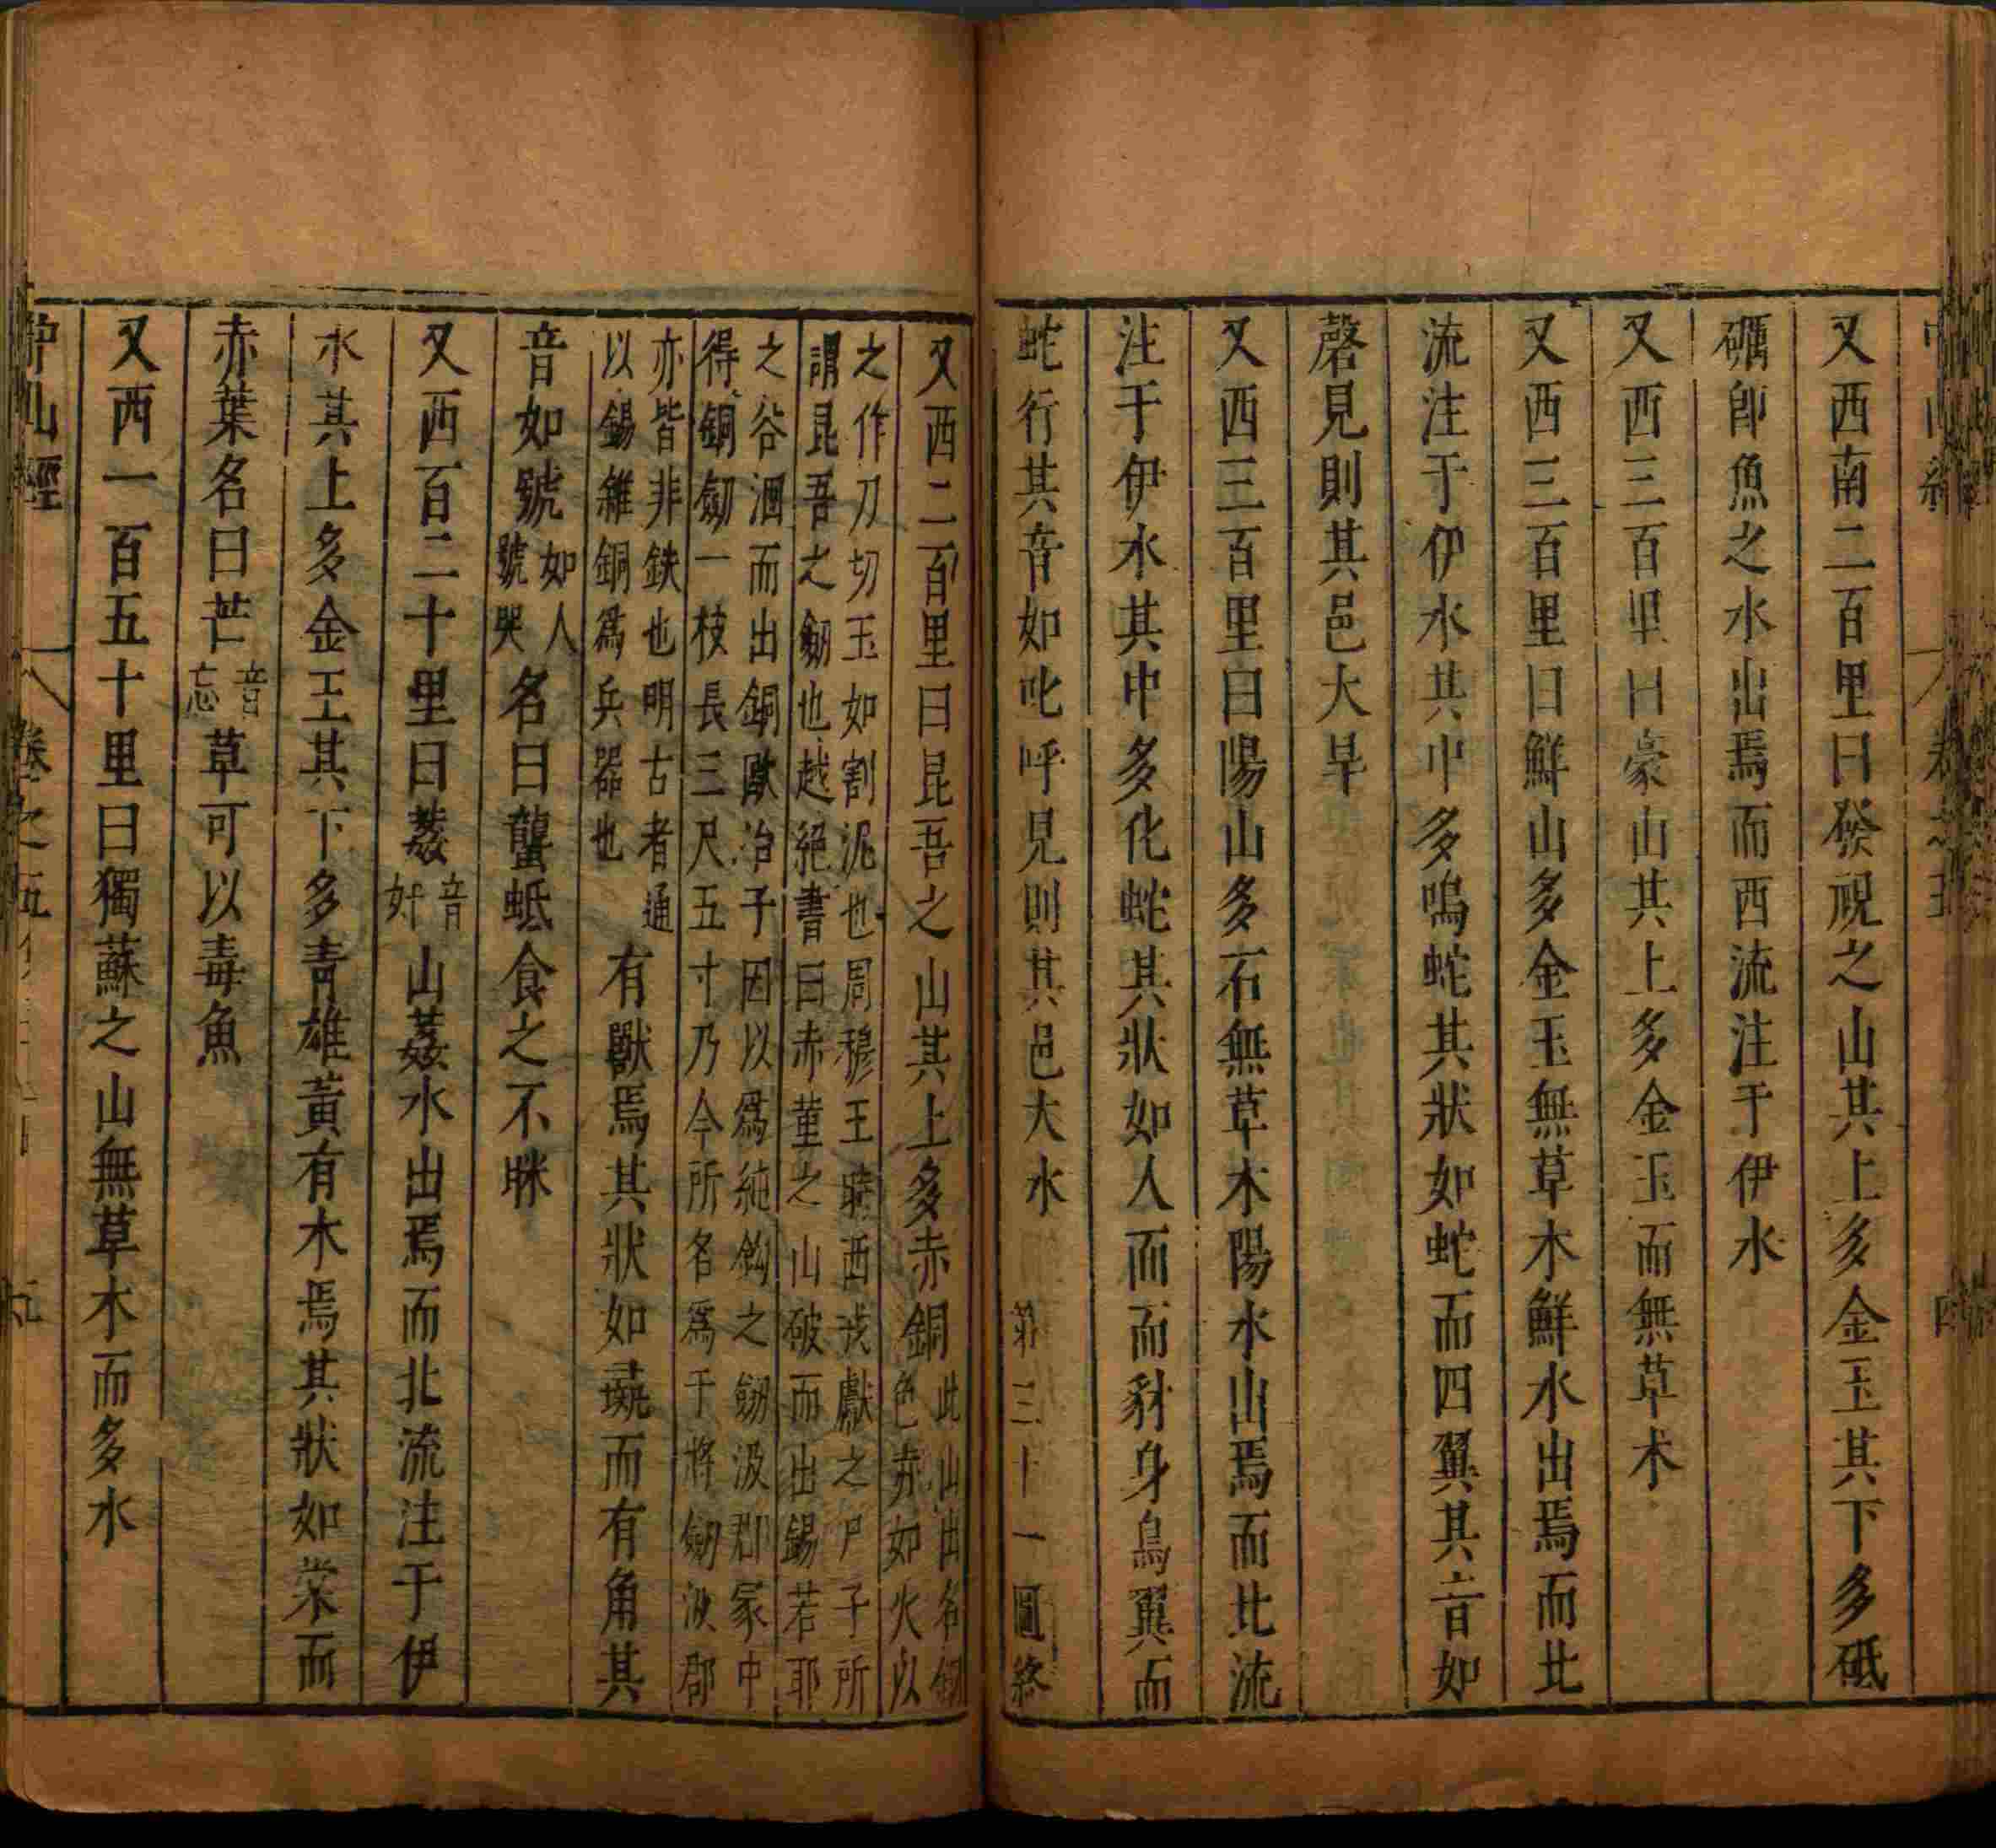 又西南二百里曰發視之山其上多金玉其下多砥
礪卽魚之水出焉而西流注于伊水
又西三百里曰豪山其上多金玉而無草木
又西三百里曰鮮山多金玉無草木鮮水出焉而北
流注于伊水其中多鳴蛇其狀如蛇而四翼其音如
磬見則其邑大旱
又西三百里曰陽山多石無草木陽水出焉而北流
注于伊水其中多化蛇其狀如人面而豺身鳥翼而
蛇行其音如叱呼見則其邑大水 第三十一圖終
又西二百里曰昆吾之山其上多赤銅
此山出名銅
色赤如火以
之作刀切玉如割泥也周穆王時西戎獻之尸子所
謂昆吾之劒也越絕書曰赤堇之山破而出錫若耶
之谷涸而出銅歐冶子因以爲純鈎之劒汲郡冢中
得銅劒一枝長三尺五寸乃今所名爲干將劒汲郡
亦皆非鉄也明古者通
以錫雜銅爲兵器也
有獸焉其狀如彘而有角其
音如號
如人
號哭
名曰蠪蚳食之不眯
又西百二十里曰葌
音
奸
山葌水出焉而北流注于伊
水其上多金玉其下多青雄黃有木焉其狀如棠而
赤葉名曰芒
音
忘
草可以毒魚
又西一百五十里曰獨蘇之山無草木而多水
山經
卷之五